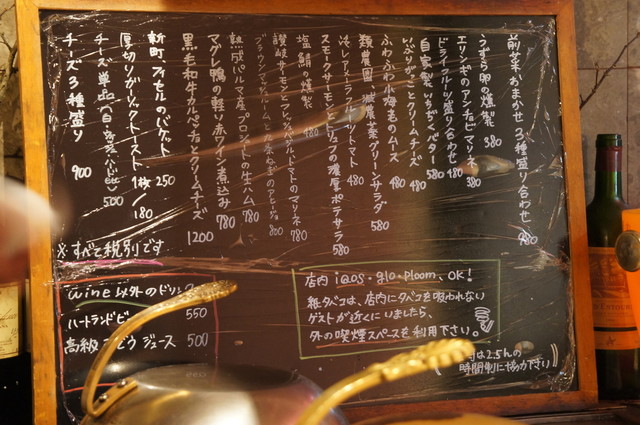 前菜おまかせ3種盛り合わせ 980
うずら卵の燻製 380
エリンギのアンチョビマリネ 380
ドライフルーツ盛り合わせ 480
自家製いちぢくバター 580
いぶりがっことクリームチーズ 480
ふわふわ小海老のムース 480
類農園、減農薬グリーンサラダ 580
スモークサーモンとトリュフの濃厚ポテサラ 580
塩鯖の燻製 480
讃岐サーモンとフレッシュトマトのマリネ 780
ブラウンマッシュルームと玉ねぎのアヒージョ 800
熟成パルマ産プロシュートの生ハム 780
マグレ鴨の軽い赤ワイン煮込み 780
黒毛和牛カルパッチョとクリームチーズ 1200
新町、フィセルのバゲット 250
厚切りガーリックトースト 1枚/180
チーズ単品 500
チーズ3種盛り 900
※すべて税別です
wine以外のドリンク
ハートランドビ 550
高級ぶどうジュース 500
店内 iQOS・glo・ploom、OK!
紙タバコは、店内にタバコを吸われない
ゲストが近くにいましたら、
外の喫煙スペースを利用下さい。
は2.5hの
時間制に協力下さい